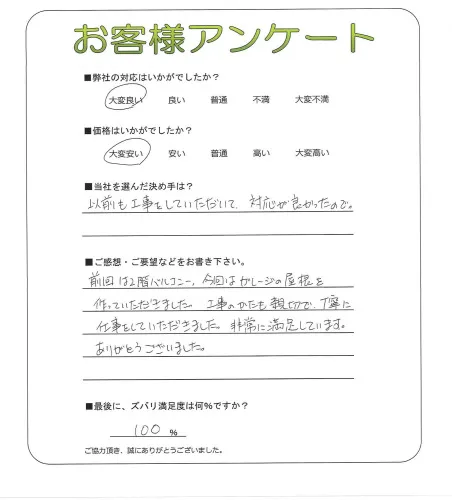 お客様アンケート
■弊社の対応はいかがでしたか？
大変良い 良い 普通 不満 大変不満
■価格はいかがでしたか？
大変安い 安い 普通 高い 大変高い
■当社を選んだ決め手は？
以前も工事をしていただいて、対応が良かったので。
■ご感想・ご要望などをお書き下さい。
前回は2階バルコニー、今回はガレージの屋根を
作っていただきました。工事のかたも親切で、丁寧に
仕事をしていただきました。非常に満足しています。
ありがとうございました。
■最後に、ズバリ満足度は何%ですか？
100 %
ご協力頂き、誠にありがとうございました。